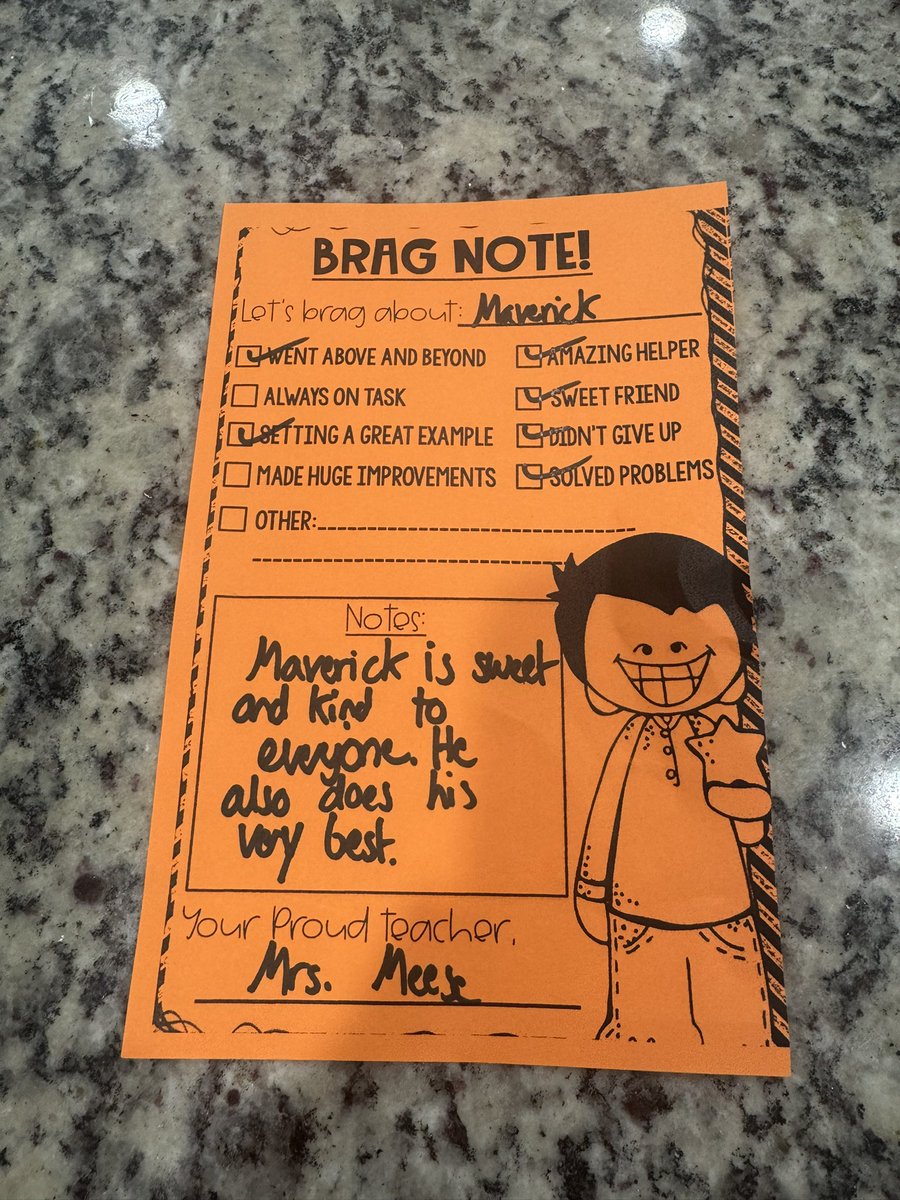 BRAG NOTE!
Let's brag about: Maverick
WENT ABOVE AND BEYOND
AMAZING HELPER
ALWAYS ON TASK
SWEET FRIEND
SETTING A GREAT EXAMPLE
DIDN'T GIVE UP
MADE HUGE IMPROVEMENTS
SOLVED PROBLEMS
OTHER:
Notes:
Maverick is sweet
and kind to
everyone. He
also does his
very best.
Your Proud teacher,
Mrs. Meese